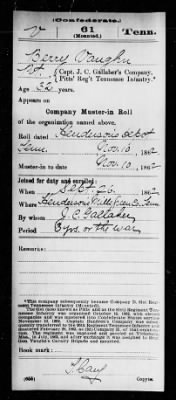 (Confederate.)
V 61 Tenn.
(Mounted.)
Berry Vaughn
Pvt, Capt. J. C. Gallaher's Company,
Pitts' Reg't Tennessee Infantry.*
Age 32 years.
Appears on
Company Muster-in Roll
of the organization named above.
Roll dated Henderson's depot
Tenn. Nov. 10, 1862.
Muster-in to date Nov. 10, 1862.
Joined for duty and enrolled:
When Sept. 26, 1862.
Where Henderson's Mills, Green Co. Tenn
By whom J. C. Gallaher
Period 3 yrs. or the war
Remarks:
*This company subsequently became Company D, 61st Regiment Tennessee Infantry (Mounted).
Book mark:
(635) Copyist.